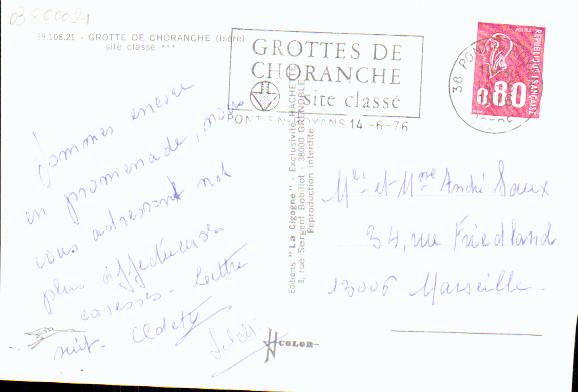 0380021
38.108.21 - GROTTE DE CHORANCHE (Isère)
site classé ***
GROTTES DE
CHORANCHE
site classé
PONT-EN-ROYANS 14-6-76
REPUBLIQUE FRANÇAISE
0.80
Sommes encore
en promenade, nous
vous adressons nos
plus affectueuses
caresses - Lettre
suit - Odette
Editions "La Cigogne" - Exclusivité HACHETTE
rue Sergent Bobillot - 38000 GRENOBLE
Reproduction interdite
COLOR
Mr et Mme André
34, rue Friedland
13006 Marseille.